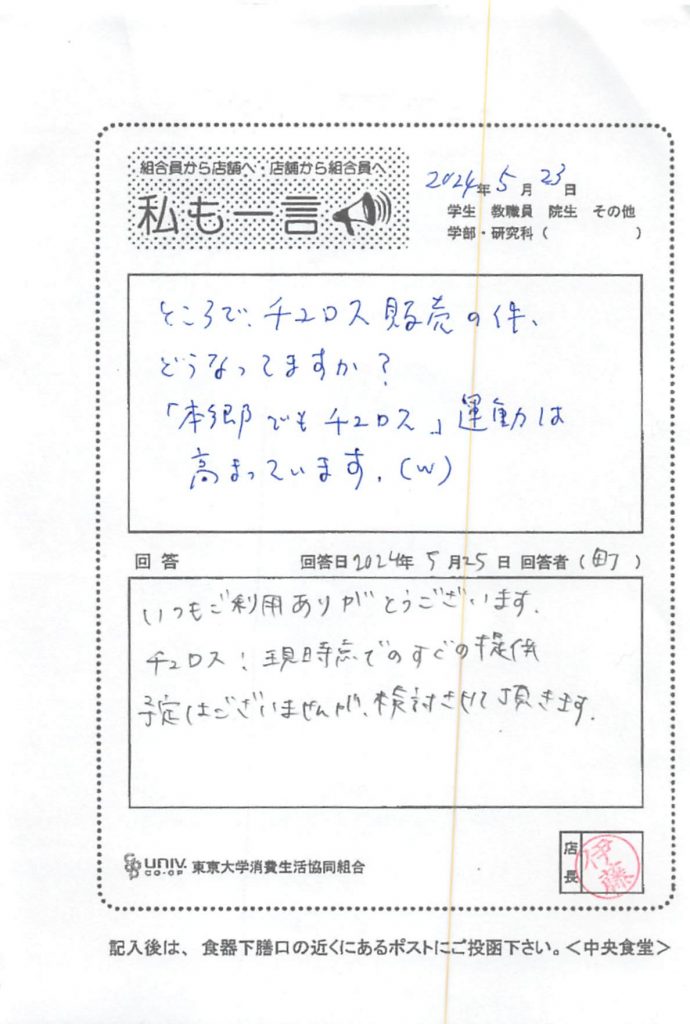 組合員から店舗へ・店舗から組合員へ
私も一言
2024年 5月 23日
学生 教職員 院生 その他
学部・研究科( )
ところで、チュロス販売の件、
どうなってますか?
「本郷でもチュロス」運動は
高まっています。(w)
回答 回答日2024年 5月25日 回答者(町)
いつもご利用ありがとうございます。
チュロス:現時点でのすぐの提供
予定はございませんが、検討させて頂きます。
店長
伊藤
univ. CO-OP 東京大学消費生活協同組合
記入後は、食器下膳口の近くにあるポストにご投函下さい。<中央食堂>